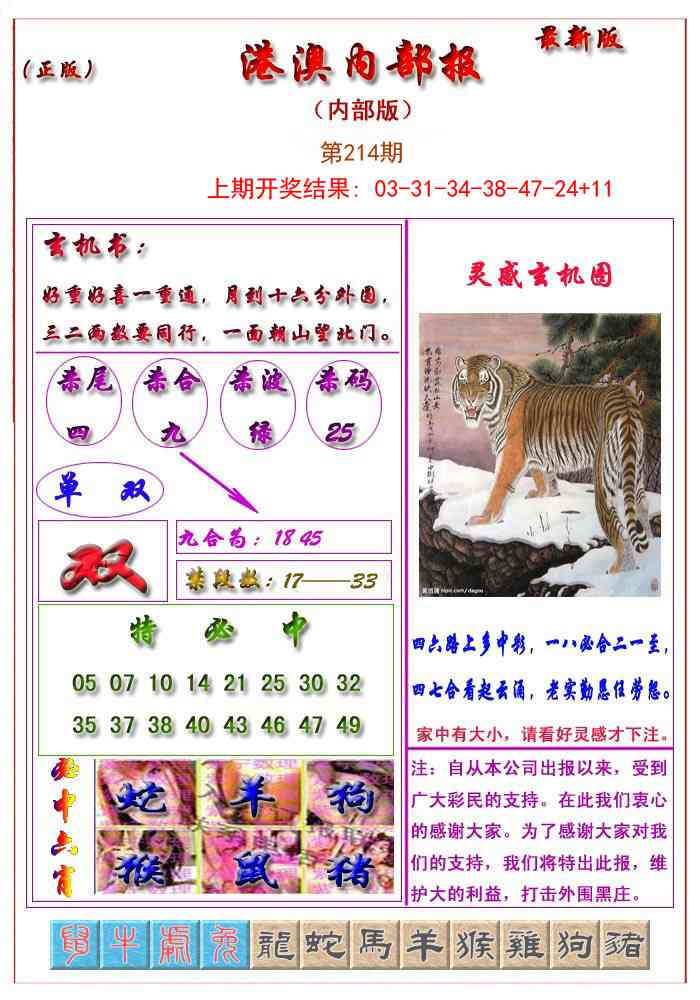 （正版）
港澳内部报
最新版
（内部版）
第214期
上期开奖结果: 03-31-34-38-47-24+11
玄机书：
好重好喜一重通，月到十六分外圆，
三二两数要同行，一面朝山望北门。
禁尾 禁合 禁波 禁码
四 九 绿 25
单 双
双
九合为：18 45
禁段数：17——33
特 必 中
05 07 10 14 21 25 30 32
35 37 38 40 43 46 47 49
必中六肖
蛇 羊 狗
猴 鼠 猪
灵感玄机图
四六路上多中彩，一八必合二一至，
四七合看起云涌，老实勤恳任劳怨。
家中有大小，请看好灵感才下注。
注：自从本公司出报以来，受到
广大彩民的支持。在此我们衷心
的感谢大家。为了感谢大家对我
们的支持，我们将特出此报，维
护大的利益，打击外围黑庄。
鼠 牛 虎 兔 龍 蛇 馬 羊 猴 雞 狗 豬